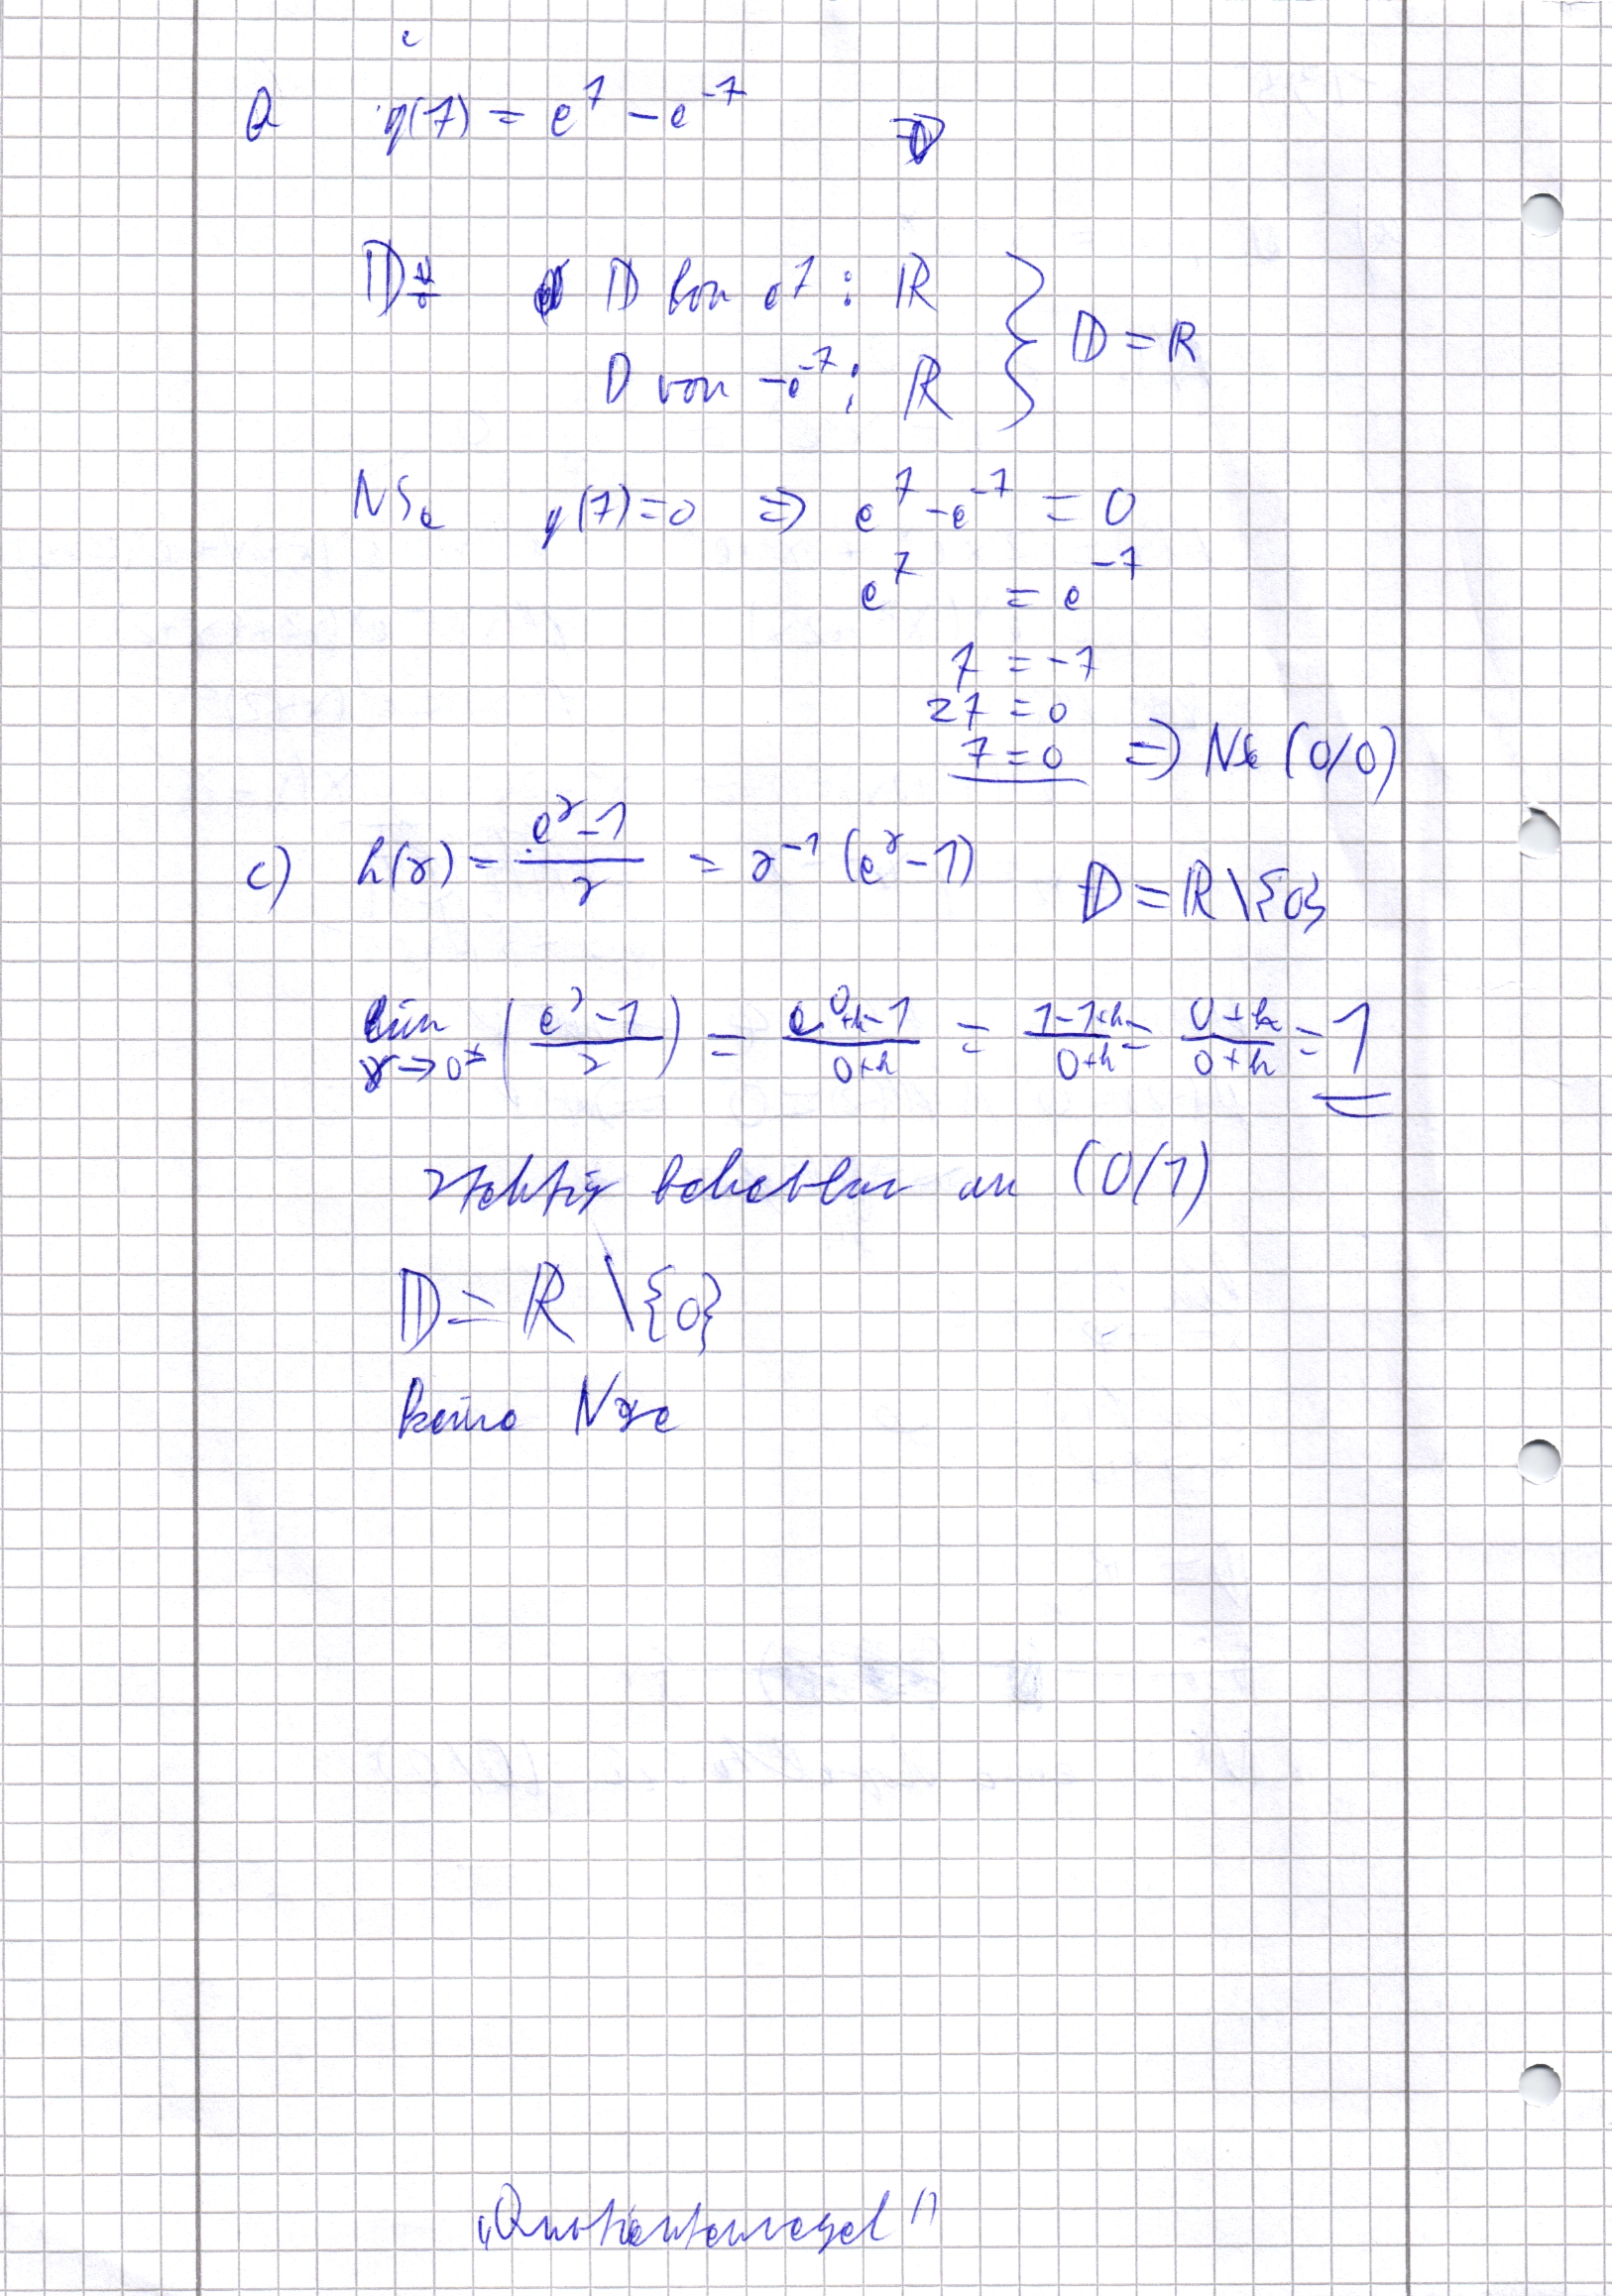 g(7) = e^7 - e^-7
D
D von e^7 : ℝ
D von -e^-7 : ℝ } D = ℝ
NSe g(7)=0 ⇒ e^7 - e^-7 = 0
e^7 = e^-7
7 = -7
27 = 0
7 = 0 ⇒ NSe (0/0)
c) h(x) = (e^x - 1)/x = x^-1 (e^x - 1) D = ℝ \ {0}
lim x→0± ((e^x - 1)/x) = (e^(0+h) - 1)/(0+h) = (1-1+h)/(0+h) = (0+h)/(0+h) = 1
behebbar an (0/1)
D = ℝ \ {0}
keine NSe
„Quotientenregel"